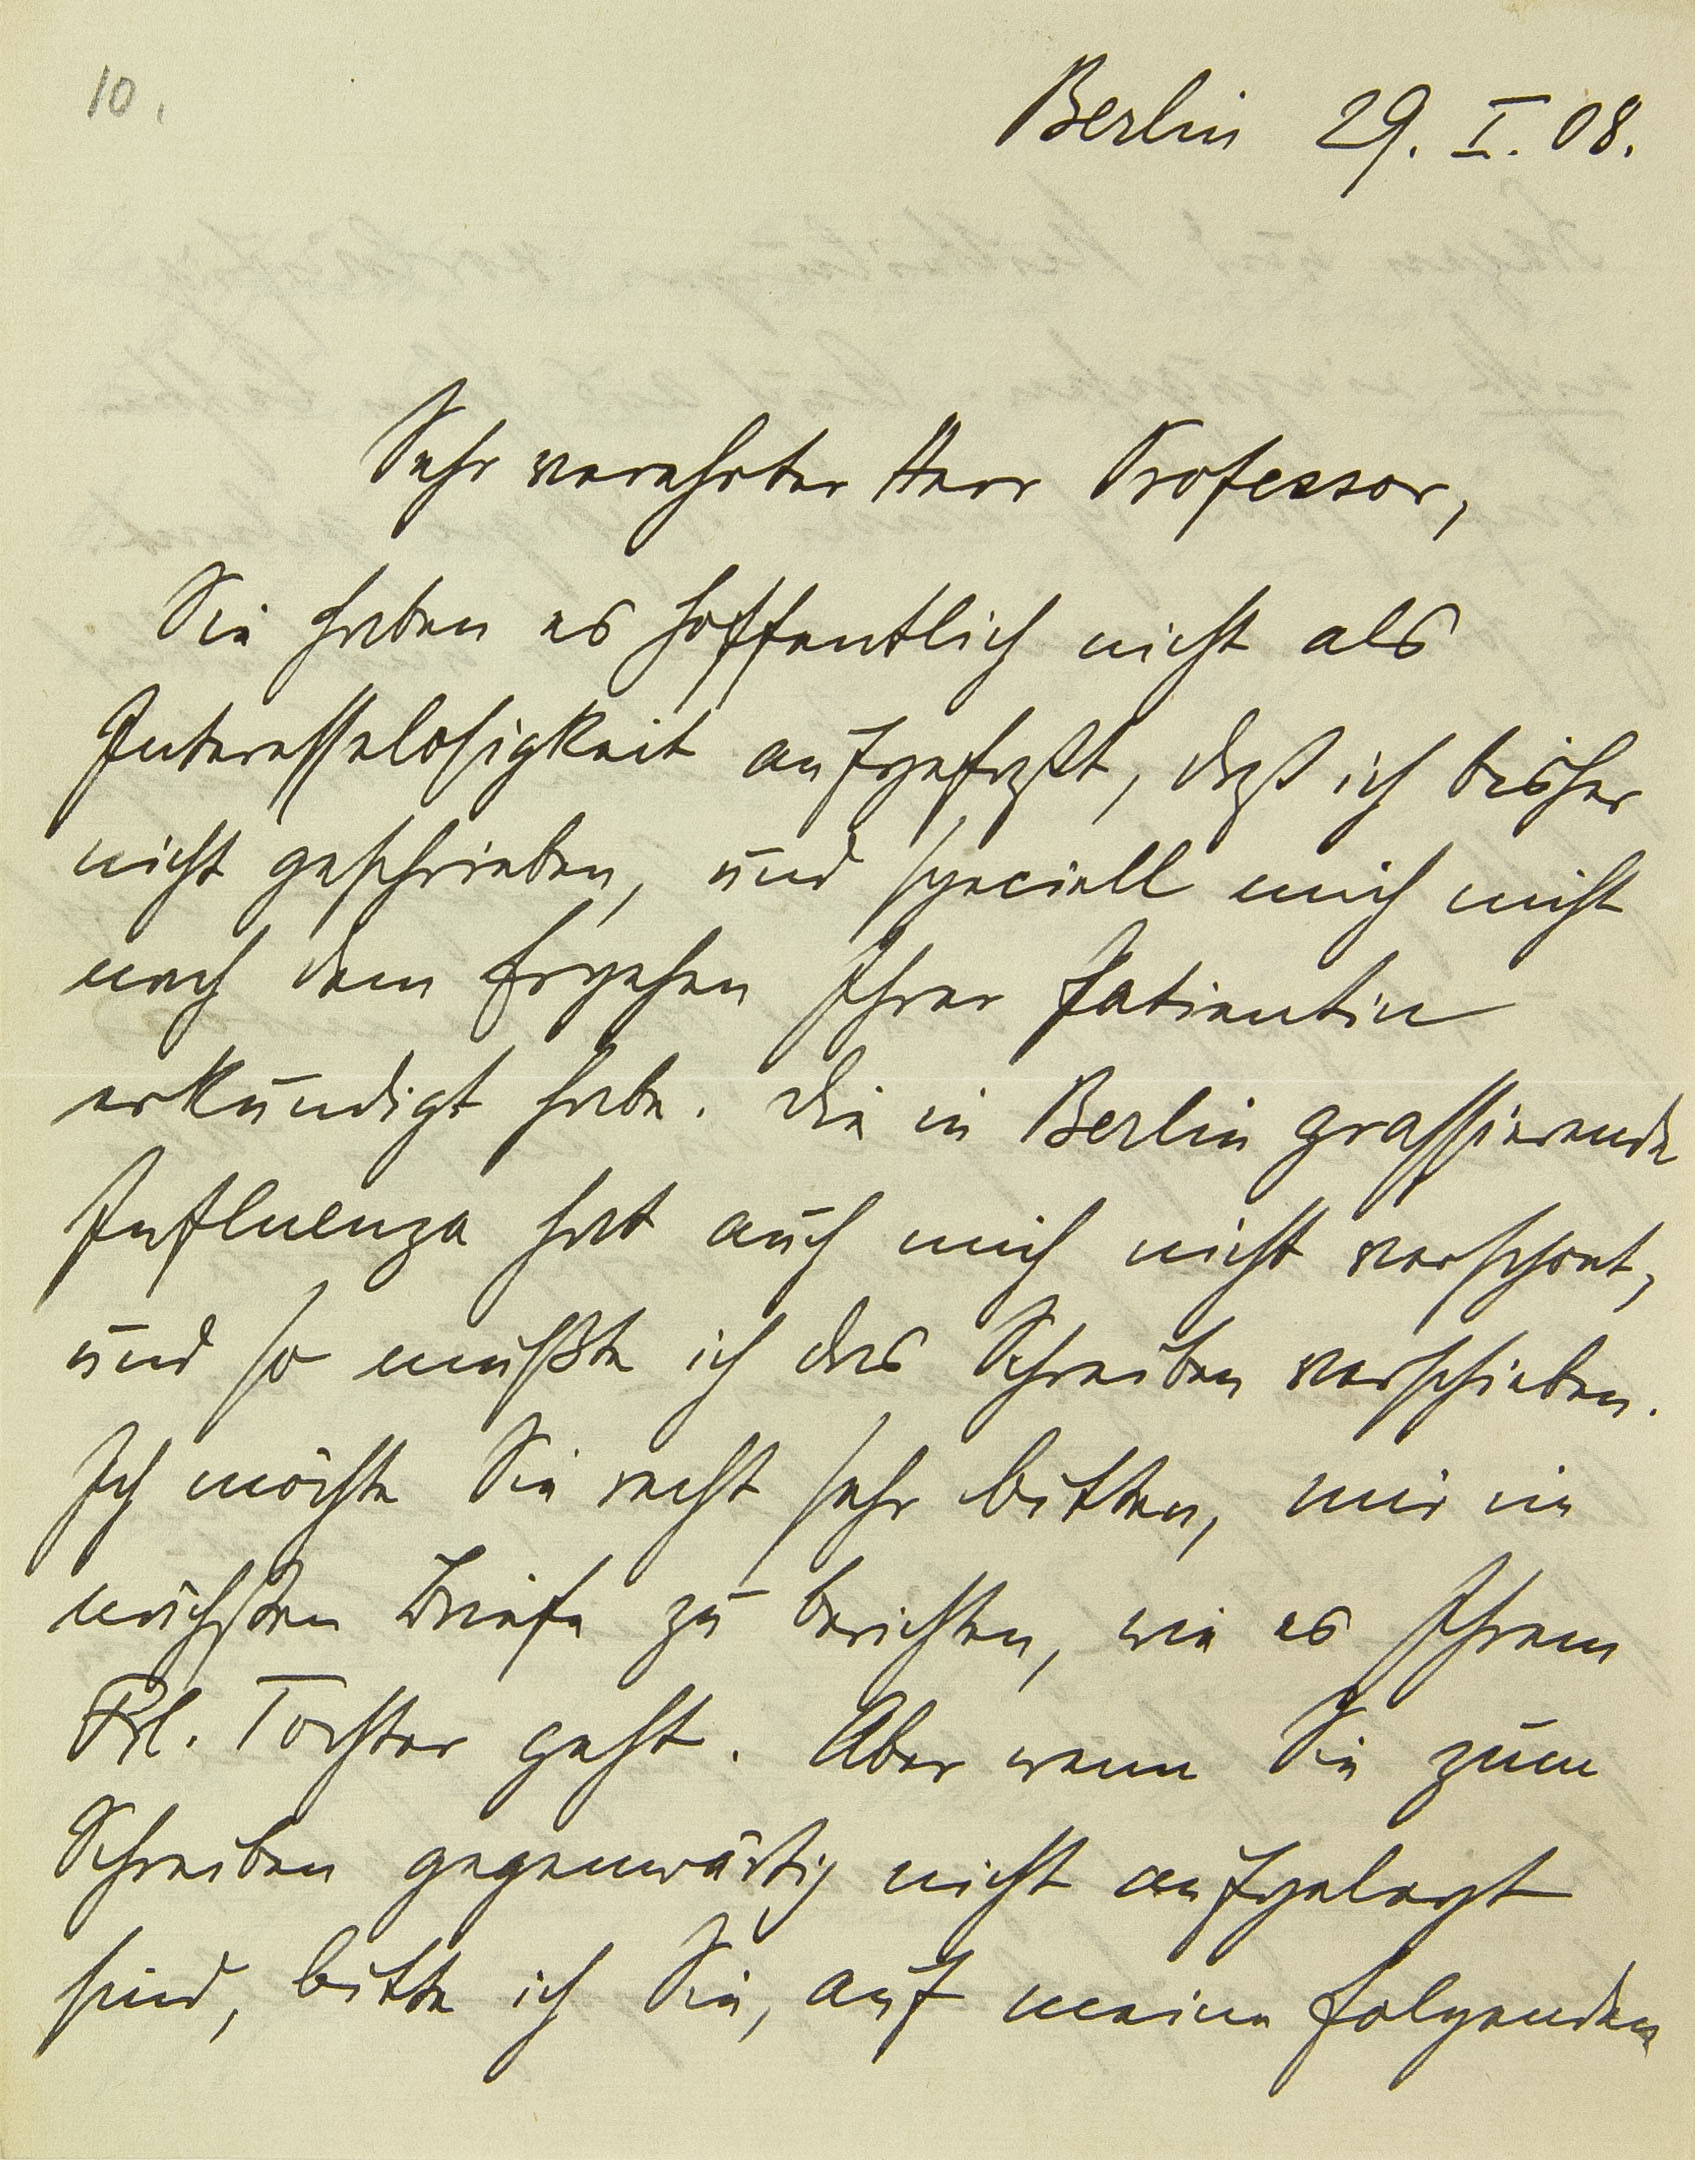 10.
Berlin 29. I. 08.
Sehr verehrter Herr Professor,
Sie haben es hoffentlich nicht als
Interesselosigkeit aufgefaßt, daß ich bisher
nicht geschrieben, und speciell mich nicht
nach dem Ergehen Ihrer Patientin
erkundigt habe. Die in Berlin grassierende
Influenza hat auch mich nicht verschont,
und so mußte ich das Schreiben verschieben.
Ich möchte Sie recht sehr bitten, mir im
nächsten Briefe zu berichten, wie es Ihrem
Frl. Tochter geht. Aber wenn Sie zum
Schreiben gegenwärtig nicht aufgelegt
sind, bitte ich Sie, auf meine folgenden